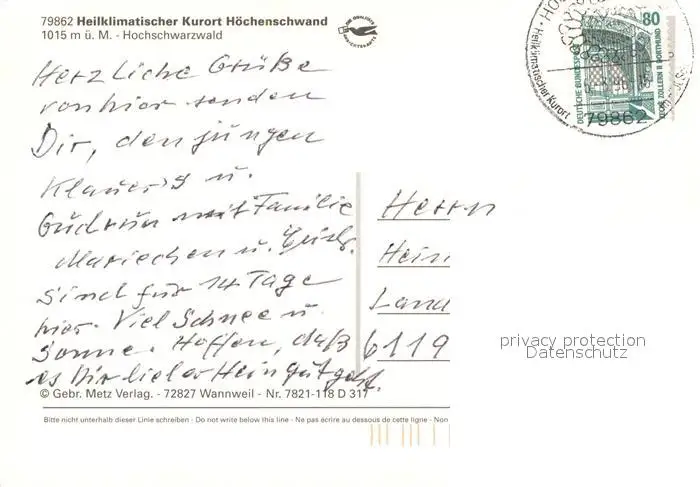 79862 Heilklimatischer Kurort Höchenschwand
1015 m ü. M. - Hochschwarzwald
80
DEUTSCHE BUNDESPOST
ZECHE ZOLLERN II DORTMUND
Heilklimatischer Kurort
79862
Herzliche Grüße
von hier senden
Dir, den jungen
Klauer's u.
Gudrun mit Familie
Mariechen u.
Sind für 14 Tage
hier. Viel Schnee u.
Sonne. Hoffen, daß
es Dir lieber Hein gut geht.
Herrn
Hein
Land
6119
privacy protection
Datenschutz
© Gebr. Metz Verlag. - 72827 Wannweil - Nr. 7821-118 D 317
Bitte nicht unterhalb dieser Linie schreiben - Do not write below this line - Ne pas écrire au dessous de cette ligne - Non